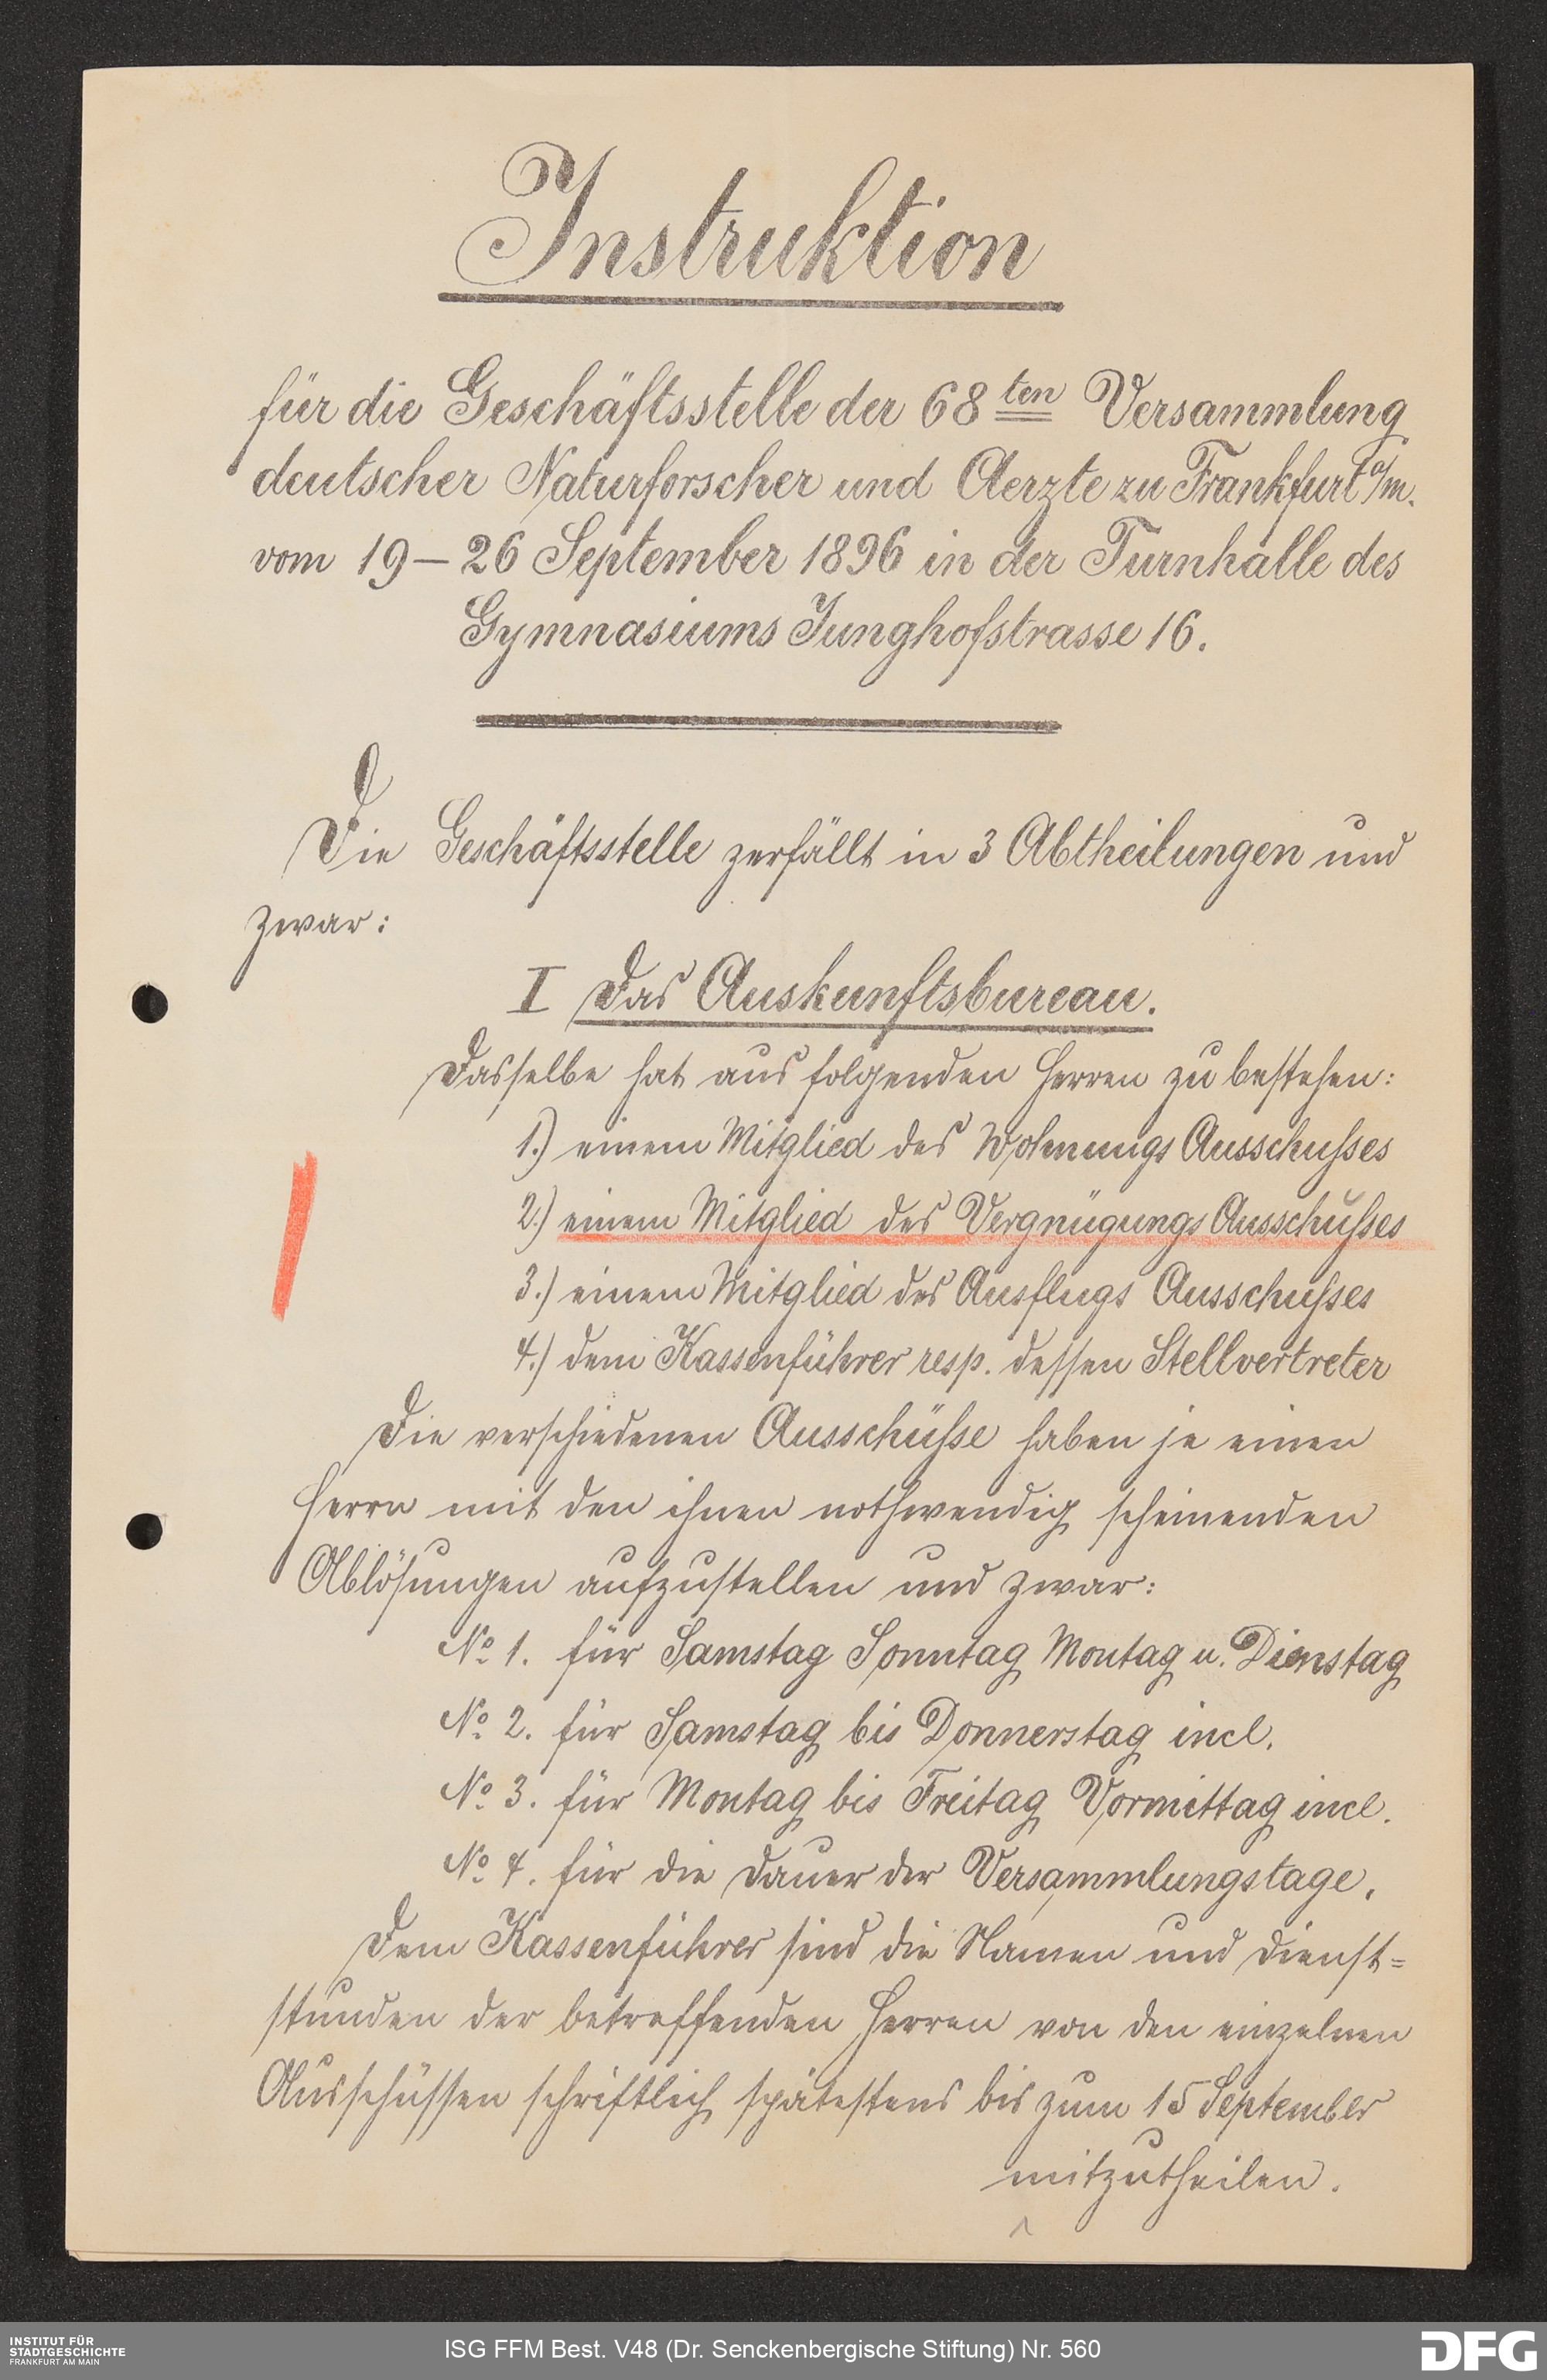 Instruktion
für die Geschäftsstelle der 68ten Versammlung
deutscher Naturforscher und Aerzte zu Frankfurt a/m.
vom 19–26 September 1896 in der Turnhalle des
Gymnasiums Junghofstrasse 16.
Die Geschäftsstelle zerfällt in 3 Abtheilungen und
zwar:
I Das Auskunftsbureau.
Dasselbe hat aus folgenden Herren zu bestehen:
1.) einem Mitglied des Wohnungs Ausschußes
2.) einem Mitglied des Vergnügungs Ausschußes
3.) einem Mitglied des Ausflugs Ausschußes
4.) dem Kassenführer resp. dessen Stellvertreter
Die verschiedenen Ausschüße haben je einen
Herrn mit den ihnen nothwendig scheinenden
Ablösungen aufzustellen und zwar:
No 1. für Samstag Sonntag Montag u. Dienstag
No 2. für Samstag bis Donnerstag incl.
No 3. für Montag bis Freitag Vormittag incl.
No 4. für die Dauer der Versammlungstage.
Dem Kassenführer sind die Namen und Dienst=
stunden der betreffenden Herren von den einzelnen
Ausschüssen schriftlich spätestens bis zum 15 September
mitzutheilen.
INSTITUT FÜR
STADTGESCHICHTE
FRANKFURT AM MAIN
ISG FFM Best. V48 (Dr. Senckenbergische Stiftung) Nr. 560
DFG